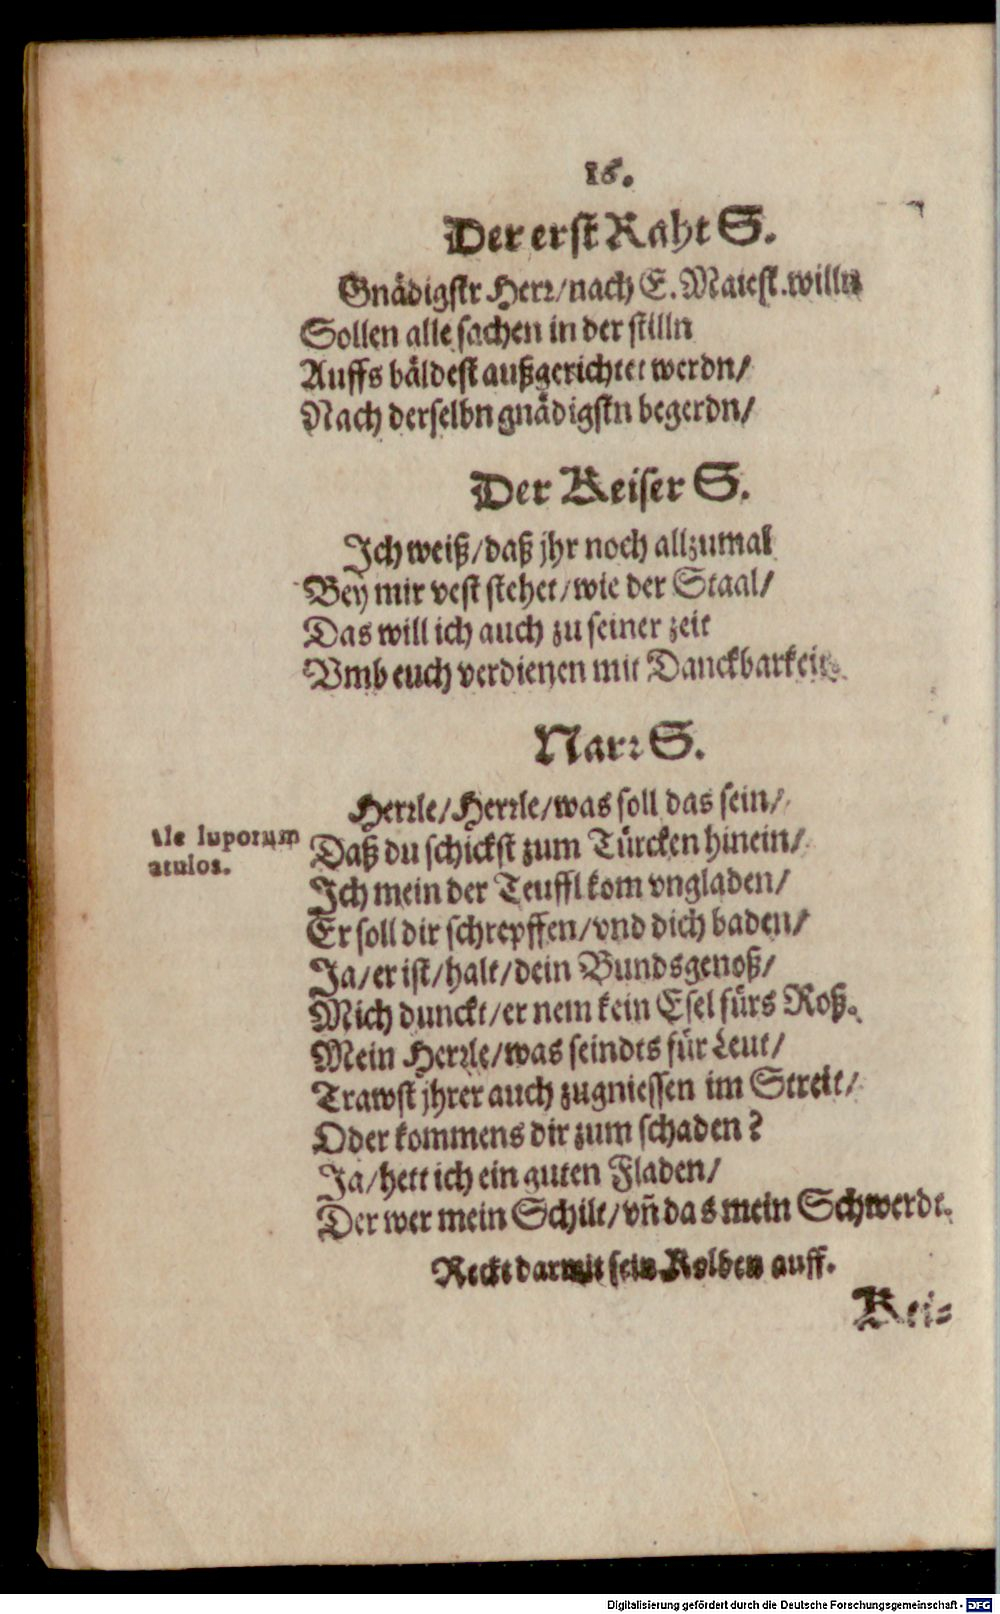 16.
Der erst Raht S.
Gnädigstr Herr/nach E. Maiest. willn
Sollen alle sachen in der stilln
Auffs bäldest außgerichtet werdn/
Nach derselbn gnädigstn begerdn/
Der Keiser S.
Ich weiß/daß jhr noch allzumal
Bey mir vest stehet/wie der Staal/
Das will ich auch zu seiner zeit
Vmb euch verdienen mit Danckbarkeit.
Narr S.
Herrle/Herrle/was soll das sein/
Daß du schickst zum Türcken hinein/
ale luporum
atulos.
Ich mein der Teuffl kom vngladen/
Er soll dir schrepffen/vnd dich baden/
Ja/er ist/halt/dein Bundsgenoß/
Mich dunckt/er nem kein Esel fürs Roß.
Mein Herrle/was seindts für Leut/
Trawst jhrer auch zugniessen im Streit/
Oder kommens dir zum schaden?
Ja/hett ich ein guten Fladen/
Der wer mein Schilt/vñ das mein Schwerdt.
Reckt darmit sein Kolben auff.
Kei-
Digitalisierung gefördert durch die Deutsche Forschungsgemeinschaft - DFG